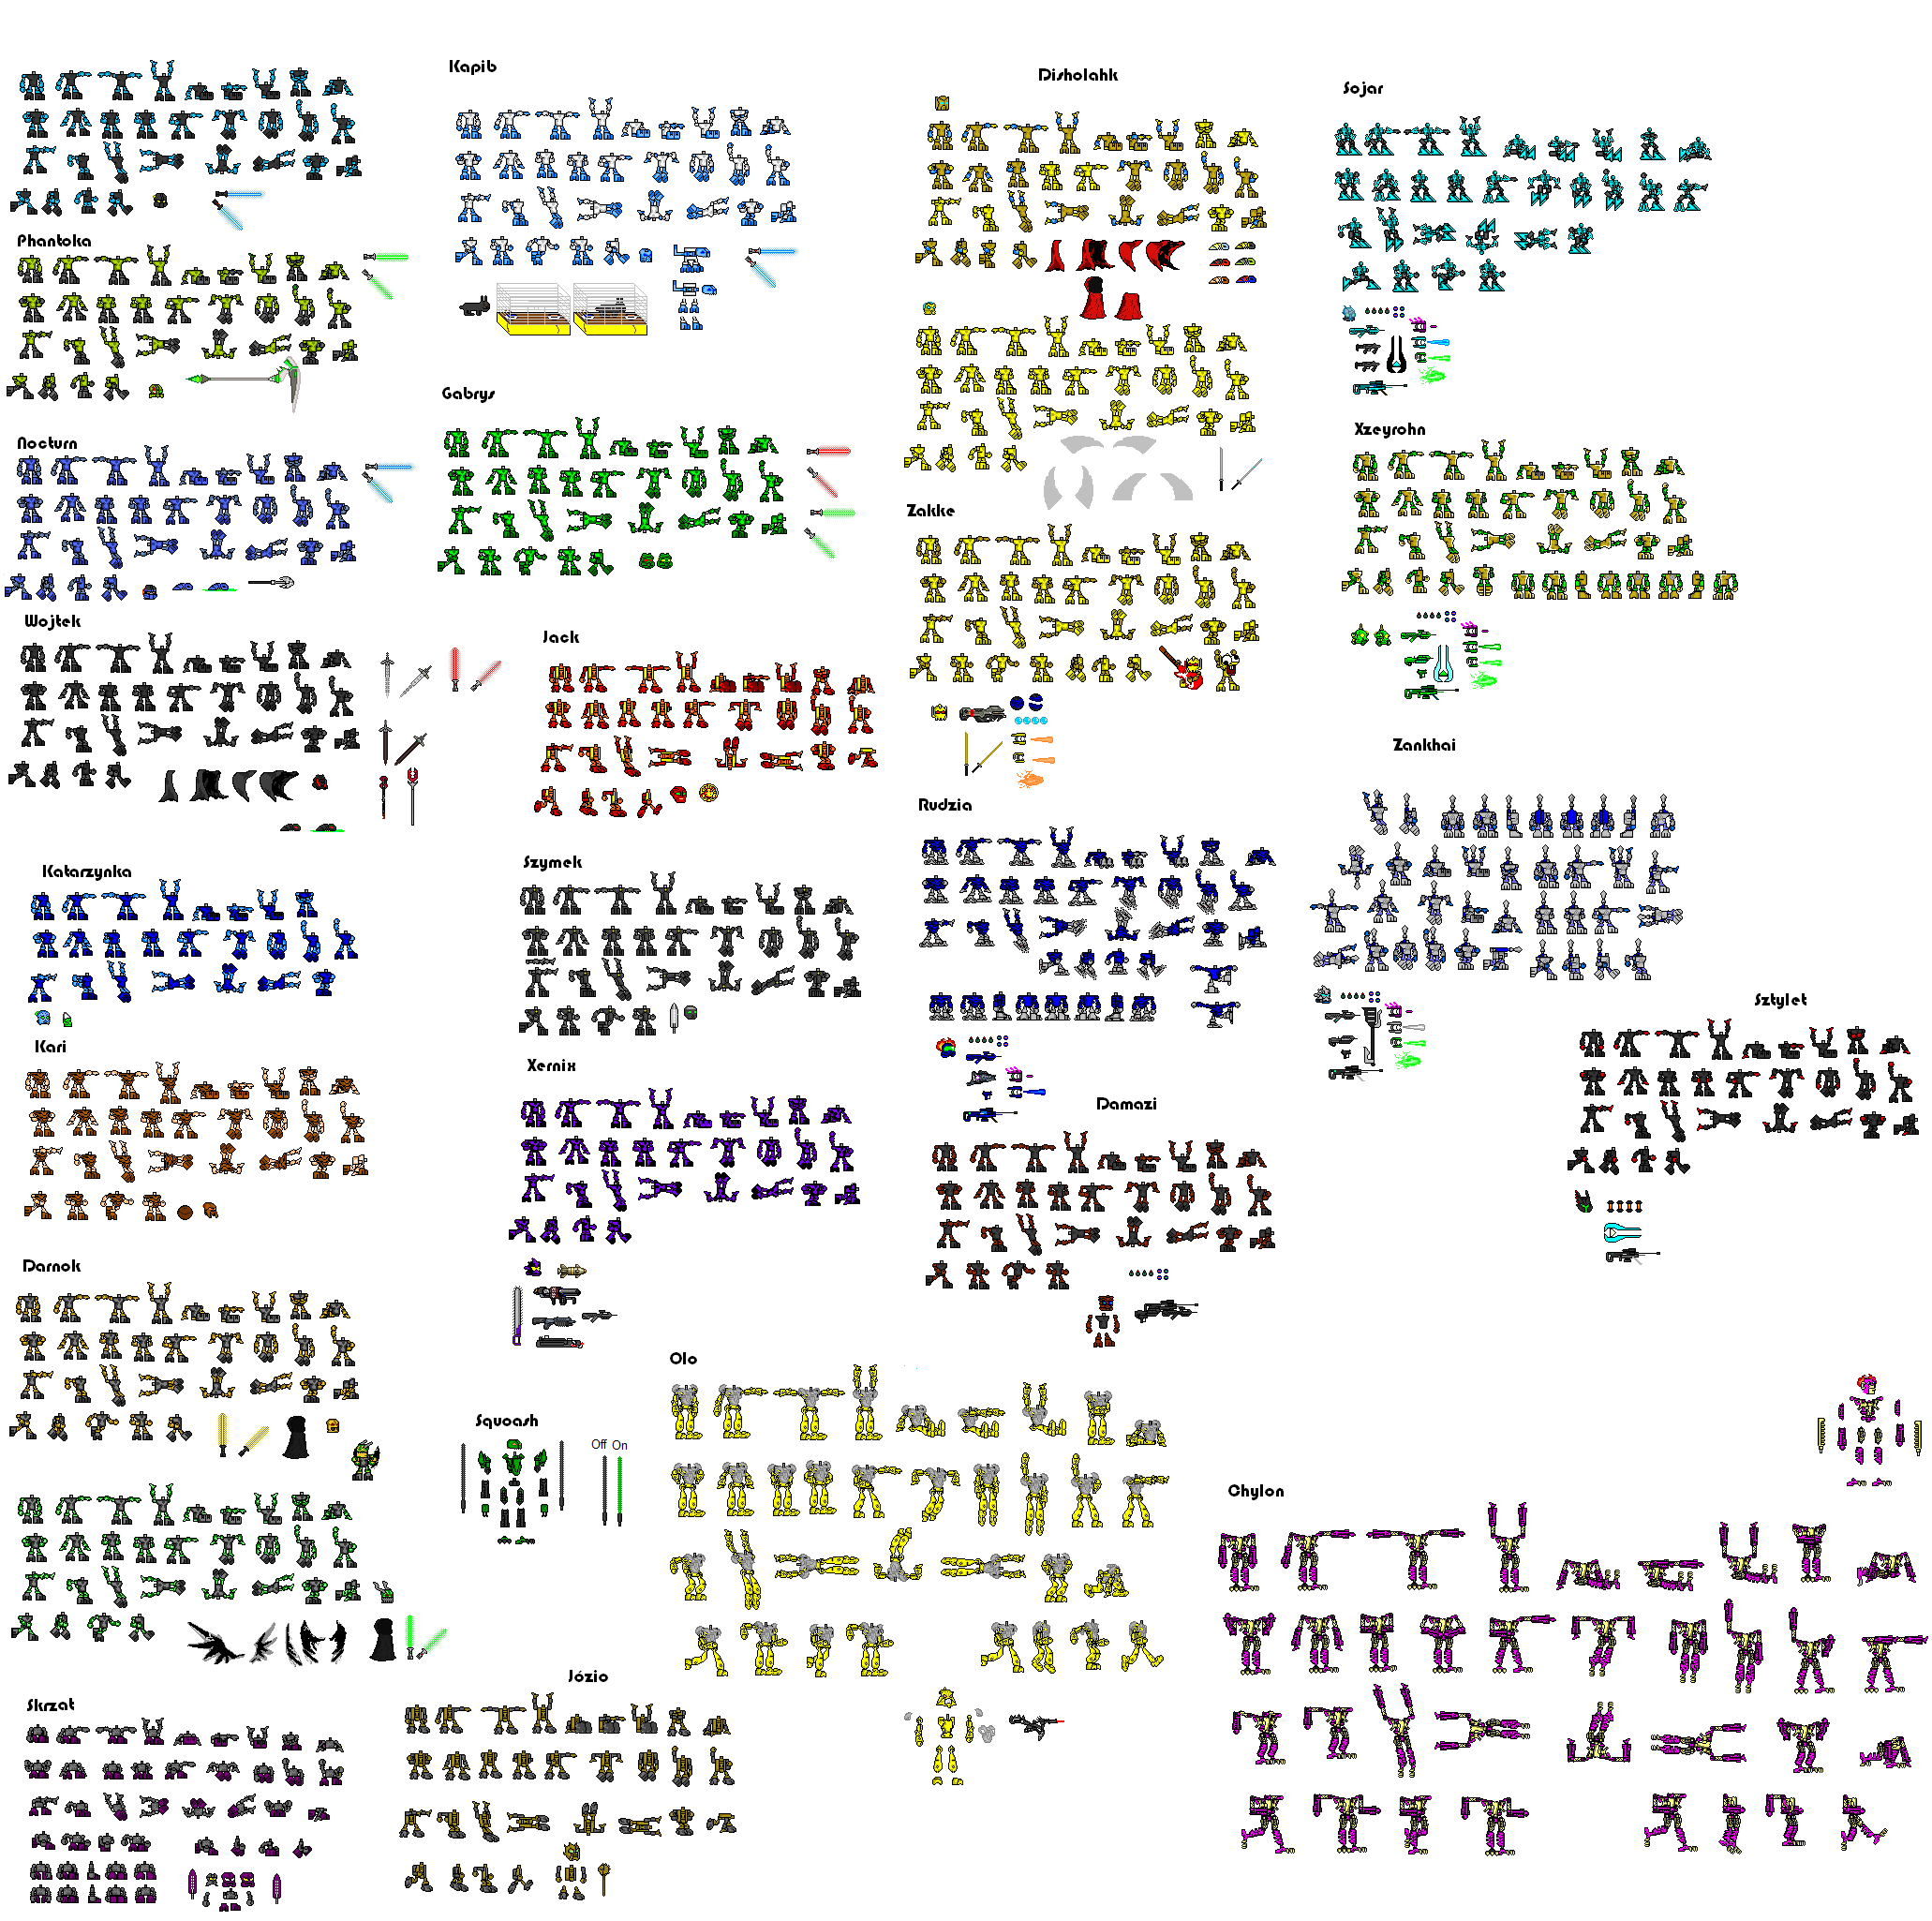 Kapib
Disholahk
Sojar
Phantoka
Gabrys
Xzeyrohn
Nocturn
Zakke
Wojtek
Jack
Zankhai
Rudzia
Szymek
Katarzynka
Sztylet
Kari
Xernix
Damazi
Darnok
Olo
Squoash
Off On
Chylon
Józio
Skrzat